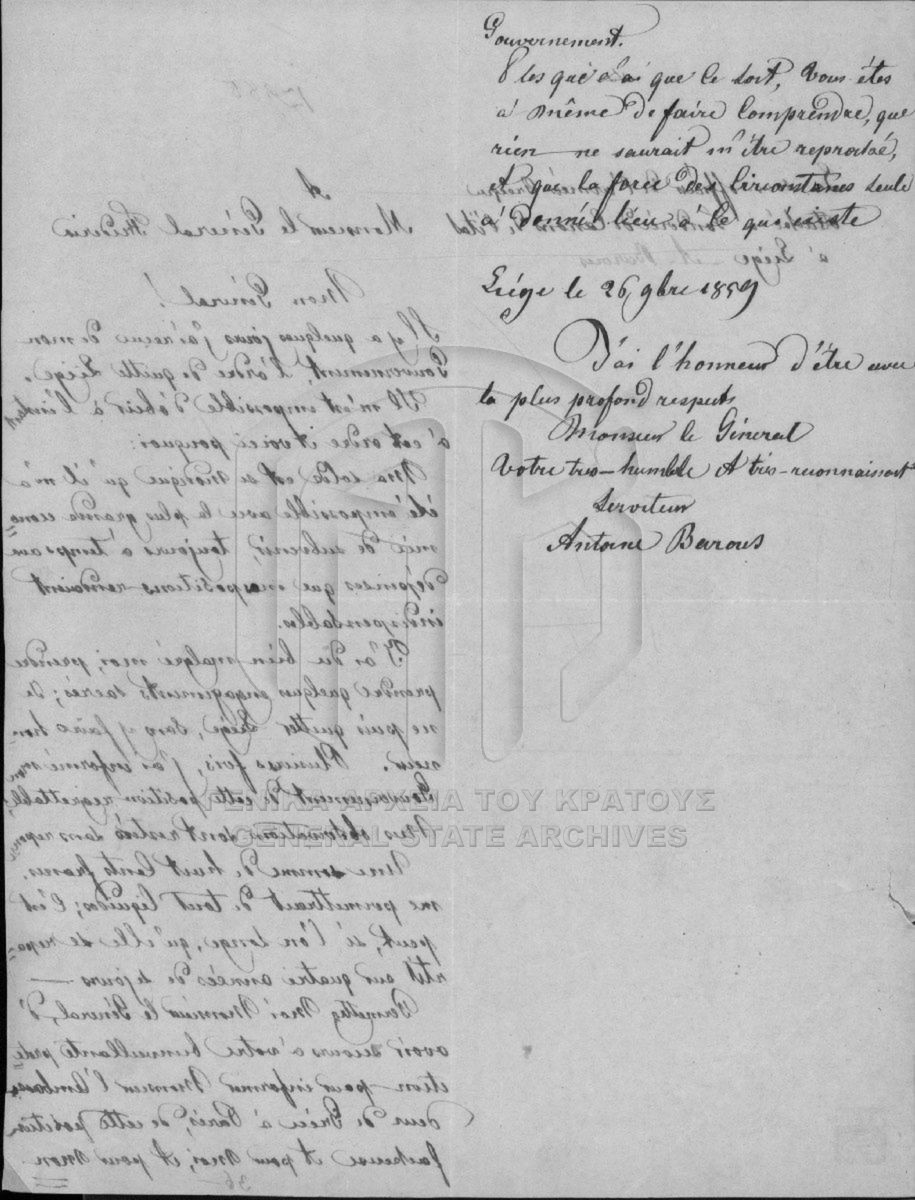 Gouvernement.
que ce soit, vous êtes
à même de faire comprendre, que
rien ne saurait m'être reproché,
et que la force des Circonstances seule
a donné lieu à ce qui existe
Liége le 26 9bre 1859
J'ai l'honneur d'être avec
la plus profond respects
Monsieur le Géneral
Votre tres-humble & trés-reconnaissant
Serviteur
Antoine Barous
A
Monsieur le Général
Mon Général!
Il y a quelques jours j'ai reçu de mon
Gouvernement, l'ordre de quitter Liége.
Il m'est impossible d'obéir à l'instant
à cet ordre et voici pourquoi:
Ma solde est si modique qu'il m'a
été impossible avec la plus grande écono=
mie de subvenir, toujours à temps aux
dépenses que mes positions rendaient
indispensables.
J'ai dû bien malgré moi, prendre
prendre quelques engagements sacrés; Je
ne puis quitter Liége, sans y faire hon-
neur. Plusieurs fois, j'ai informé mon
Gouvernement de cette position regrettable,
Mes observations sont restées sans répon=
Une somme de huit Cents francs,
me permettrait de tout liquider; C'est
peut, si l'on songe, qu'elle se répa=
rtit sur quatre années de séjours —
Permettez Moi Monsieur le Général, d'
avoir recours à votre bienveillante prote=
ction pour informer Monsieur l'Ambassa=
deur de Gréce à Paris, de cette position
facheuse et pour Moi, et pour Mon
ΓΕΝΙΚΑ ΑΡΧΕΙΑ ΤΟΥ ΚΡΑΤΟΥΣ
GENERAL STATE ARCHIVES